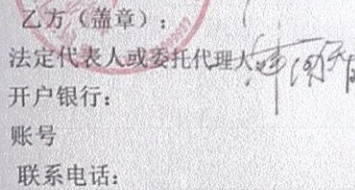 乙方（盖章）：
法定代表人或委托代理人
开户银行：
账号
联系电话：